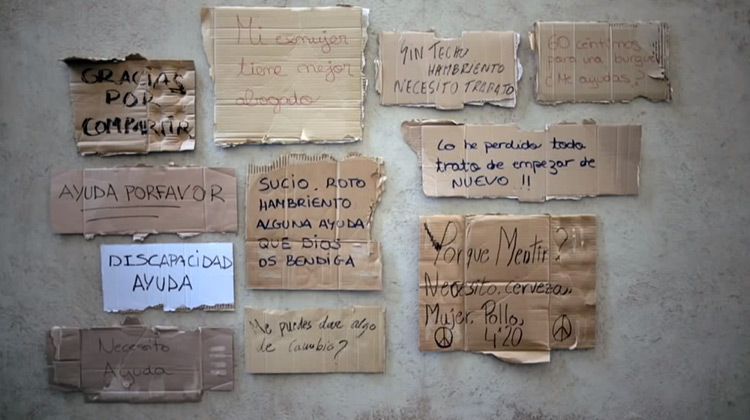 GRACIAS
POR
COMPARTIR
Mi exmujer
tiene mejor
abogado
SIN TECHO
HAMBRIENTO
NECESITO TRABAJO
60 centimos
para una burguer
¿Me ayudas?
AYUDA PORFAVOR
SUCIO, ROTO
HAMBRIENTO
ALGUNA AYUDA
QUE DIOS
OS BENDIGA
Lo he perdido todo
trato de empezar de
NUEVO !!
DISCAPACIDAD
AYUDA
Porque Mentir?
Necesito. Cerveza,
Mujer. Pollo,
4:20
Necesito
Ayuda
Me puedes dar algo
de Cambio?